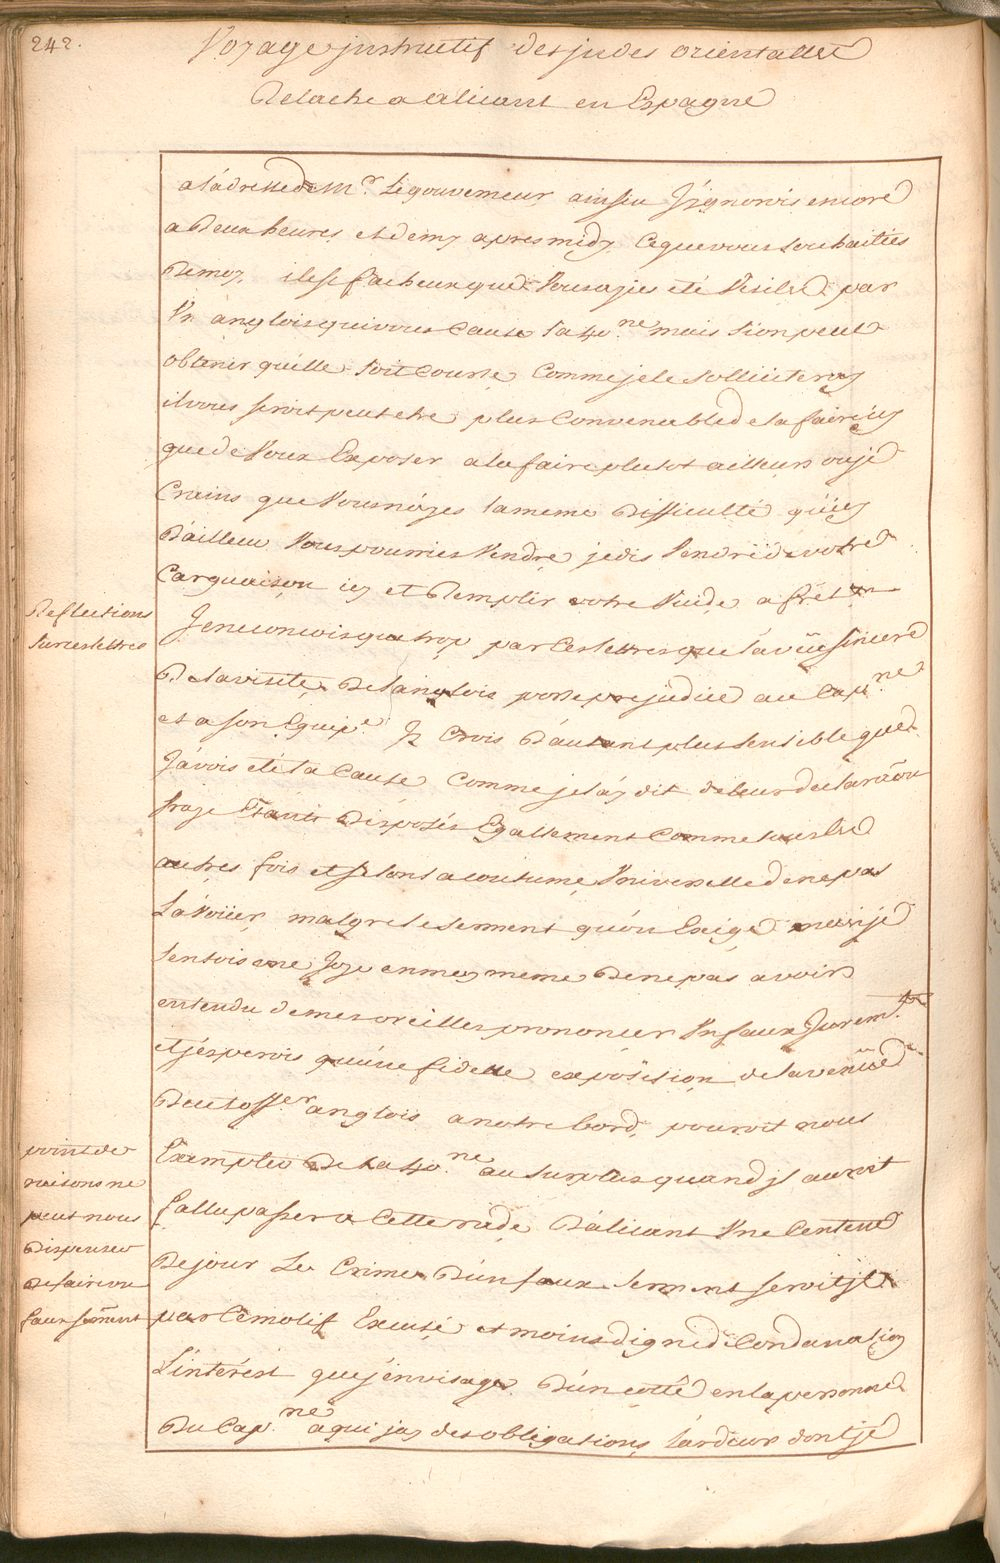 242.
Voyage instructif des jndes orientalles
Relache a alicant en Espagne
a l'adresse de Mr. Le gouverneur ainsin J'jgnorois encore
a Deux heures et demy apres midy ce que vous souhaities
De moy. il est facheux que Vous ajies eté Visité par
Vn anglois qui vous cause la 40.ne mais si on peut
obtenir qu'elle soit courte comme je le solliciteray
il vous seroit peut etre plus convenable de la faire icy
que de Vous Exposer a la faire plutot ailleurs ou je
Crains que Vous n'ayes la meme Difficulté qu'icy
D'ailleu Vous pourries Vendre je dis Vendre de votre
Carguaison icy et Remplir votre Vuide a fret
Reflections
sur ces lettres
Je ne concois qua trop par Ces lettres que l'aveu sincere
De la visite De l'anglois porte prejudice au Cap.ne
et a son Equip.e J'en Crois D'autant plus sensible que
J'avois eté la Cause Comme je l'ay dit de leur declaraõn
Etants Disposés Egallement Comme tous les
autres fois et selons la coutume Vniverselle de ne pas
L'avoüer, malgre le serment qu'on Exige mais je
sentois une Joye en moy meme De ne pas avoir
entendu de mes oreilles prononcer Vn faux Jurem.t
et j'esperois qu'une fidelle exposition de la venüe
De cet off.er anglois a notre bord, pouroit nous
point de
raisons ne
peut nous
Dispenser
De faire un
faux serment
Exempter De la 40.ne au surplus quand jl auroit
fallu passer a Cette rade D'alicant Vne Centene
De jour Le Crime D'un faux serment seroit jl
par Ce motif Excusé et moins digne de Condanation
L'interest que j'envisage D'un cotté en la personne
Du Cap.ne a qui jay des obligations, l'ardeur dont je